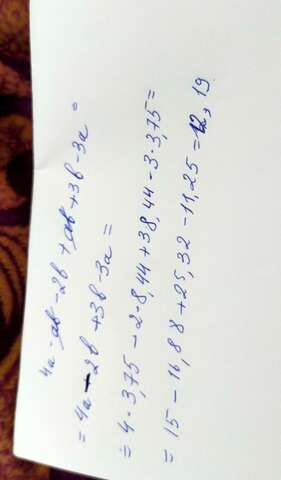 4a - ab - 2b + ab + 3b - 3a =
= 4a - 2b + 3b - 3a =
= 4·3,75 - 2·8,44 + 38,44 - 3·3,75 =
= 15 - 16,88 + 25,32 - 11,25 = 12,19